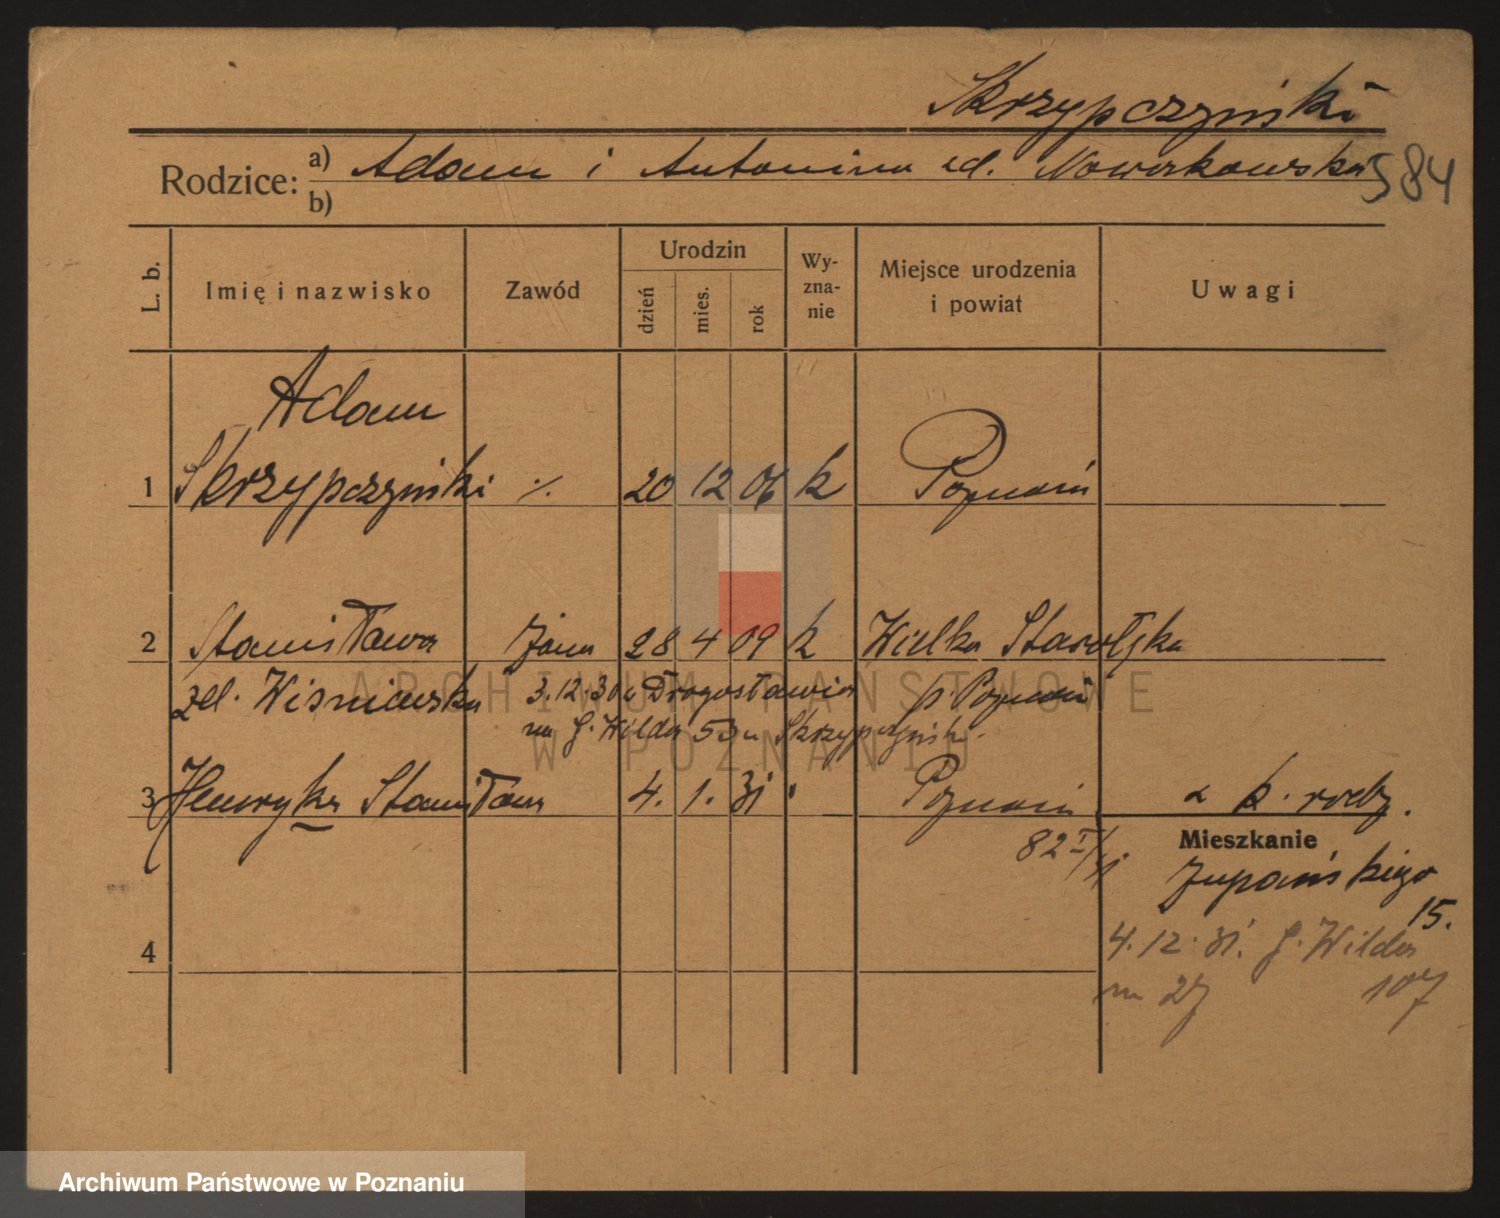 Skrzypczyński
Rodzice: a) Adam i Antonina zd. Nowakowska 584
b)
L. b. Imię i nazwisko Zawód Urodzin dzień mies. rok Wyznanie Miejsce urodzenia i powiat Uwagi
Adam
1 Skrzypczyński ·/. 20 12 06 k Poznań
2 Stanisława żona 28 4 09 k Wielka Starołęka
zd. Wiśniewska 3.12.30 Drogosławia p. Poznań
na G. Wilda 53 u Skrzypczyński.
3 Henryka Stanisława 4. 1. 31 " Poznań k. rodz.
82 I/31 Mieszkanie
Żupańskiego
15.
4 4.12.31. G. Wilda
m 27 107
ARCHIWUM PAŃSTWOWE
W POZNANIU
Archiwum Państwowe w Poznaniu